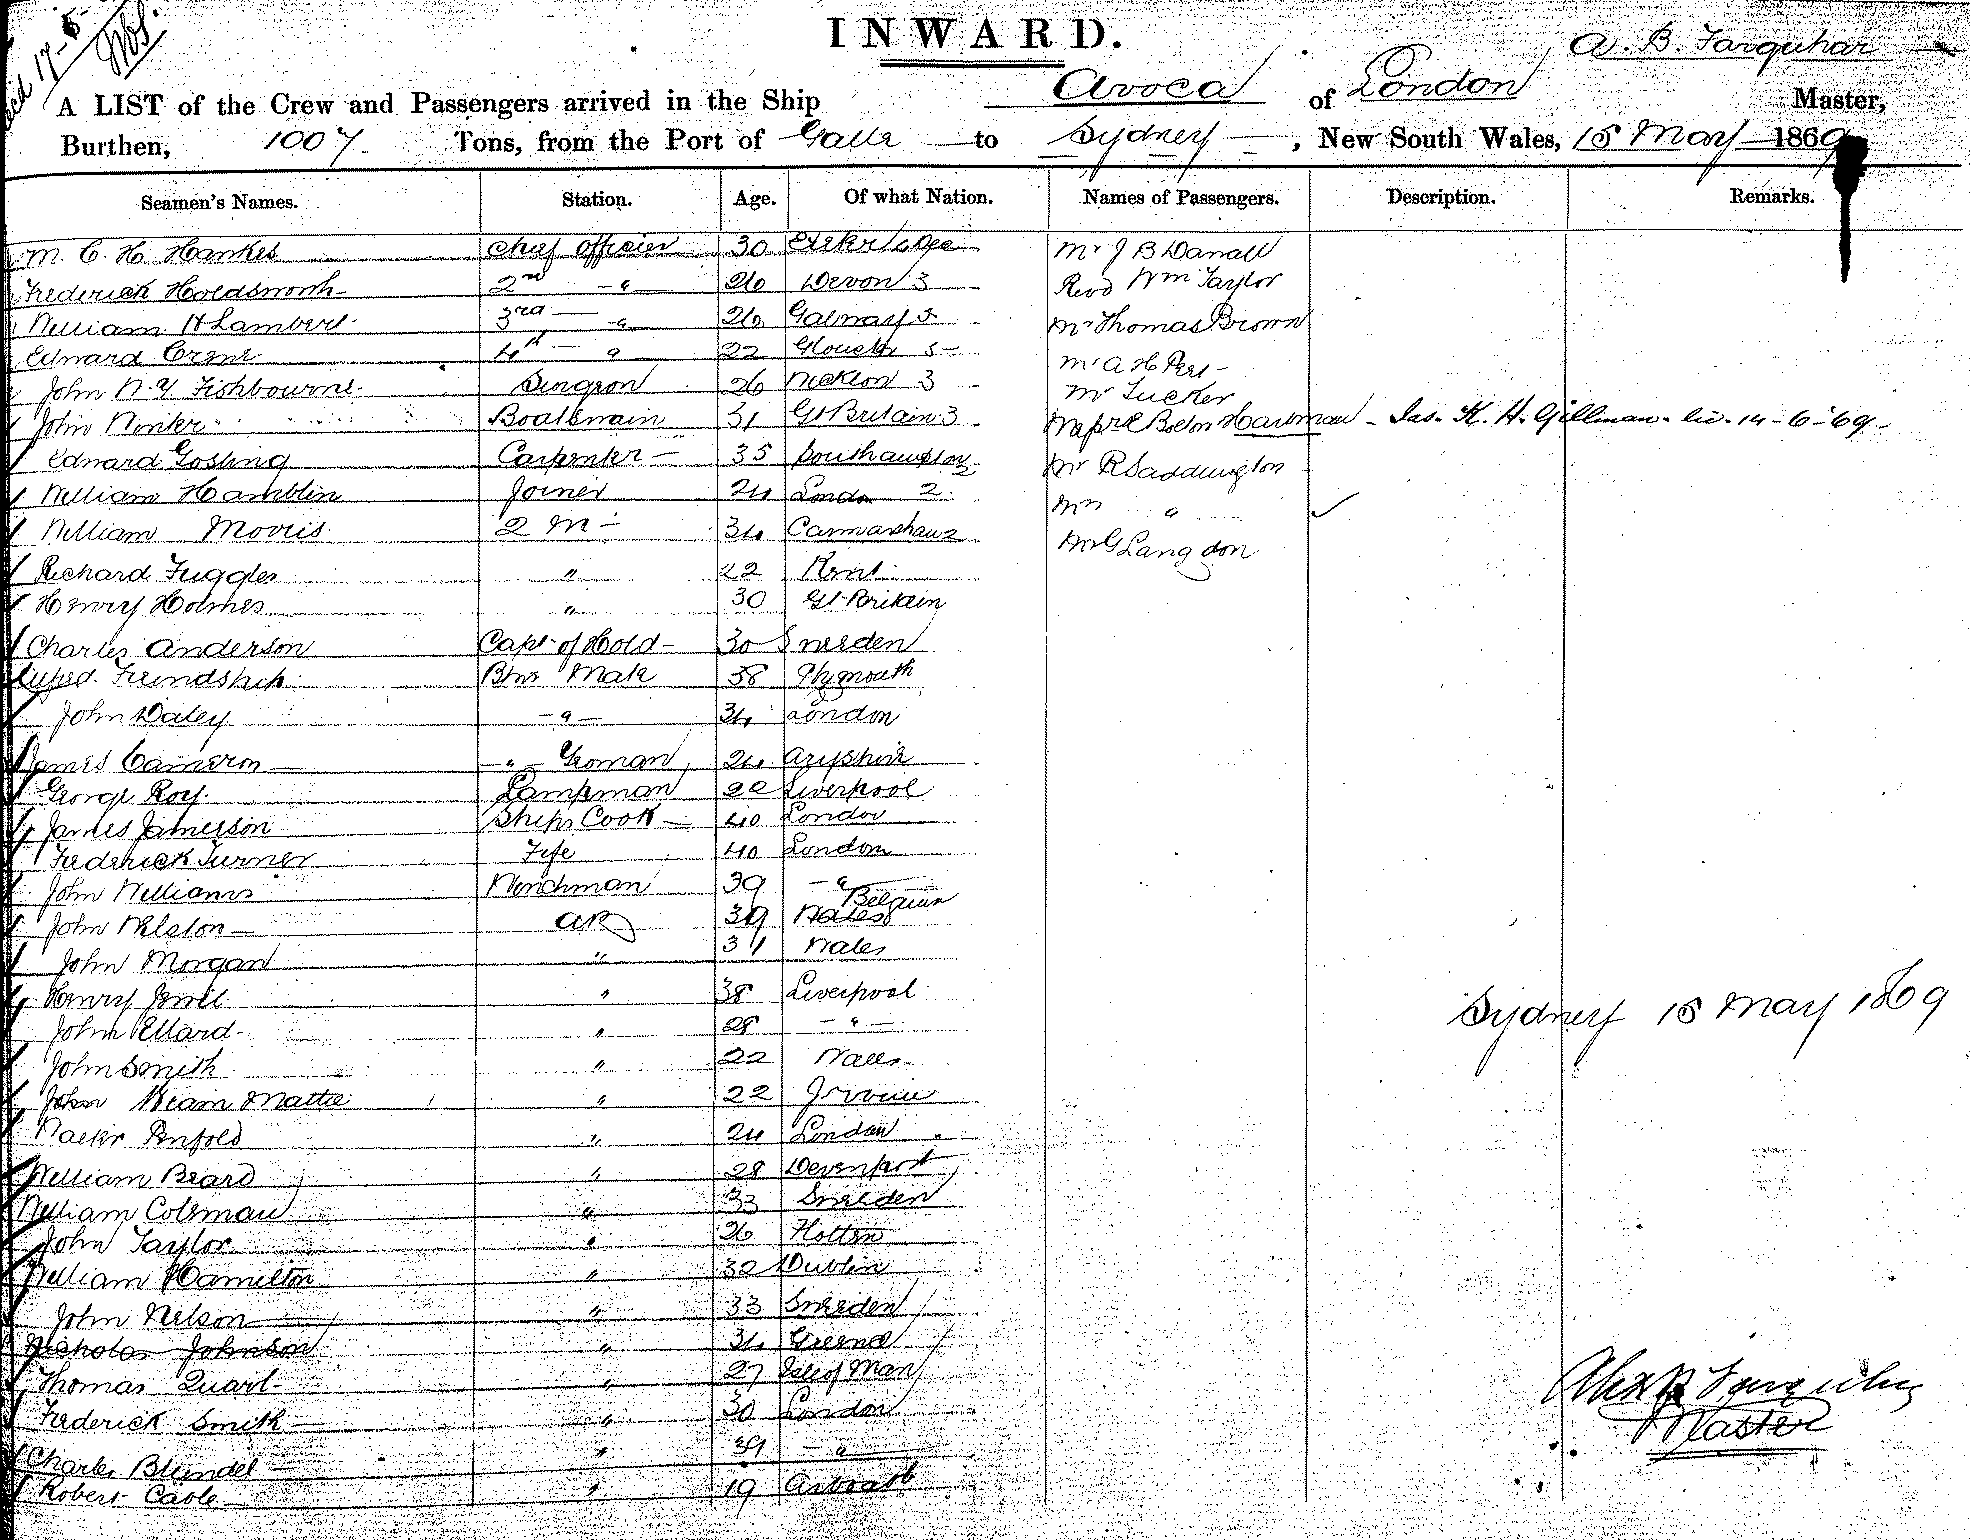 INWARD.
A. B. Farquhar
A LIST of the Crew and Passengers arrived in the Ship Avoca of London Master,
Burthen, 1007 Tons, from the Port of Galle to Sydney, New South Wales, 15 May 1869
Seamen's Names. Station. Age. Of what Nation. Names of Passengers. Description. Remarks.
M. C. H. Hankes Chief Officer 30 Mr J B Darvall
Frederick Holdsworth 2nd " 26 Devon 3 Revd Wm Taylor
William H Lambert 3rd " 26 Galway 3 Mr Thomas Brown
Edward Crane 4th " 22 Mr A H
John Fishbourne Surgeon 26 Wicklow 3 Mr Tucker
John Boatswain 31 Gt Britain 3 Jas. K. H. Gillman. 14-6-69
Edward Gosling Carpenter 35 Southampton 2 Mr R Saddington
William Hamblin Joiner 24 London 2 Mrs "
William Morris 2 M 34 Mr G Langdon
Richard Fuggles " 22 Kent
Henry Holmes " 30 Gt Britain
Charles Anderson Capt of Hold 30 Sweden
Alfred Friendship Btns Mate 38 Plymouth
John Daley " 34 London
James Cameron " Yeoman 24 Ayrshire
George Roy Lampman 22 Liverpool
James Jamerson Ships Cook 40 London
Frederick Turner Fife 40 London
John Williams Winchman 39 "
Belgium
John AB 39 Wales
John Morgan " 31 Wales
Henry " 38 Liverpool
John Ellard " 28 "
Sydney 15 May 1869
John Smith " 22 Wales
John " 22
Penfold " 24 London
William Beard " 28 Devenport
William Coleman " 33 Sweden
John Taylor " 26
William Hamilton " 30 Dublin
John Nelson " 33 Sweden
Nicholas Johnson " 34
Thomas Quart " 27 Isle of Man
Alex B Farquhar
Frederick Smith " 30 London
Master
Charles Blundel " 39 "
Robert Cable " 19